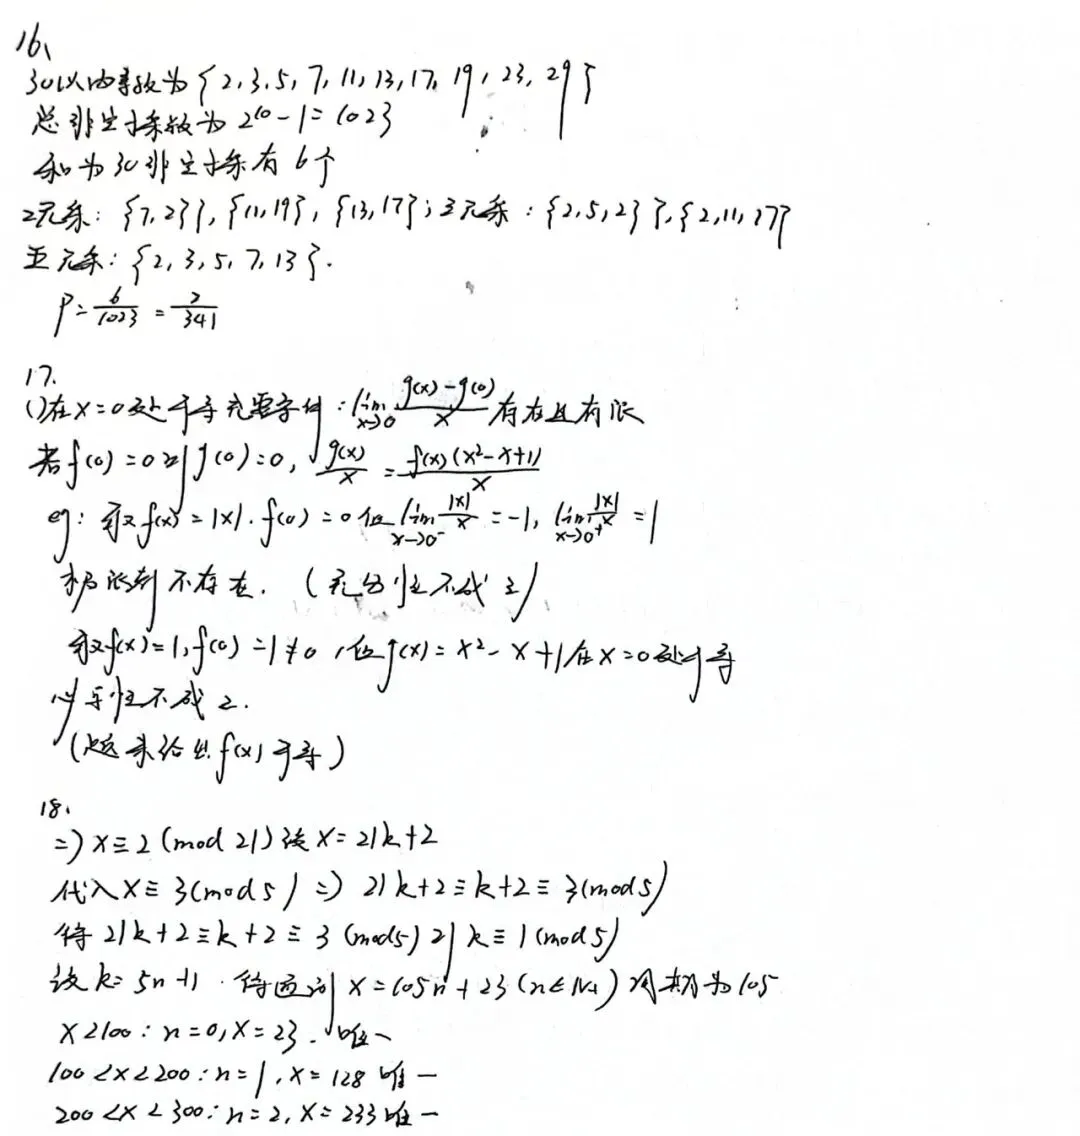 16、
30以内素数为{2,3,5,7,11,13,17,19,23,29}
总非空子集数为2^10-1=1023
和为30非空子集有6个
2元集：{7,23},{11,19},{13,17};三元集：{2,5,23},{2,11,17}
五元集：{2,3,5,7,13}.
P=6/1023=2/341
17.
(1)在x=0处可导充要条件：lim x→0 (g(x)-g(0))/x 存在且有限
若f(0)=0则g(0)=0, g(x)/x=f(x)(x²-x+1)/x
eg：取f(x)=|x|.f(0)=0但lim x→0⁻ |x|/x=-1,lim x→0⁺ |x|/x=1
极限不存在.(充分性不成立)
取f(x)=1,f(0)=1≠0,但g(x)=x²-x+1在x=0处可导
必要性不成立.
(题未给出f(x)可导)
18.
=)x≡2(mod 21)设x=21k+2
代入x≡3(mod5)=)21k+2≡k+2≡3(mod5)
得21k+2≡k+2≡3(mod5)则k≡1(mod5)
设k=5n+1.得通解x=105n+23(n∈N+)周期为105
x<100:n=0,x=23.唯一
100<x<200:n=1,x=128唯一
200<x<300:n=2,x=233唯一